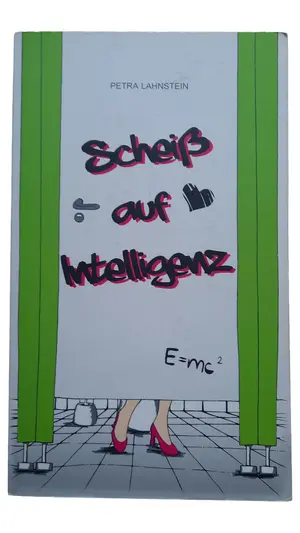 PETRA LAHNSTEIN
Scheiß
auf
Intelligenz
E=mc²